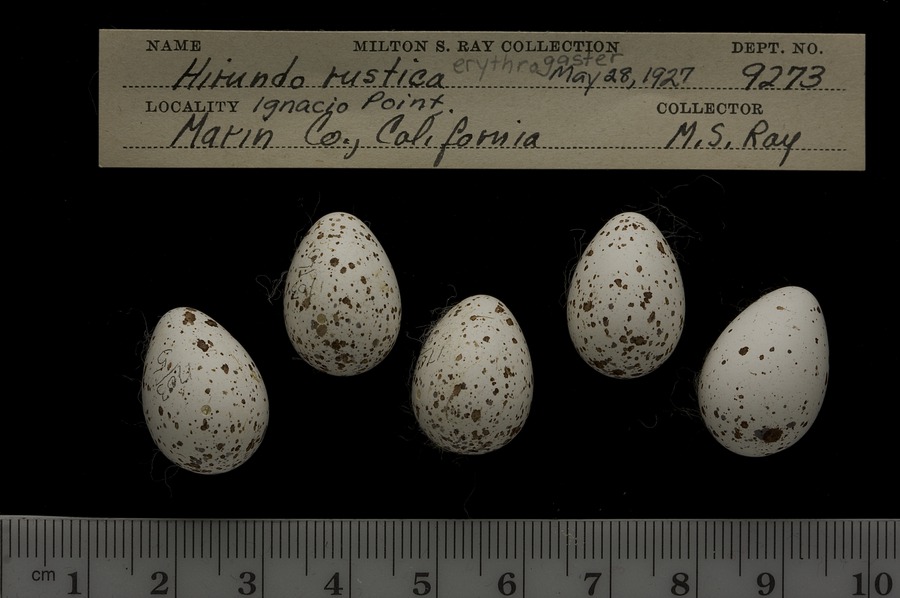 NAME MILTON S. RAY COLLECTION DEPT. NO.
Hirundo rustica erythragaster May 28, 1927 9273
LOCALITY Ignacio Point. COLLECTOR
Marin Co., California M.S. Ray
cm 1 2 3 4 5 6 7 8 9 10